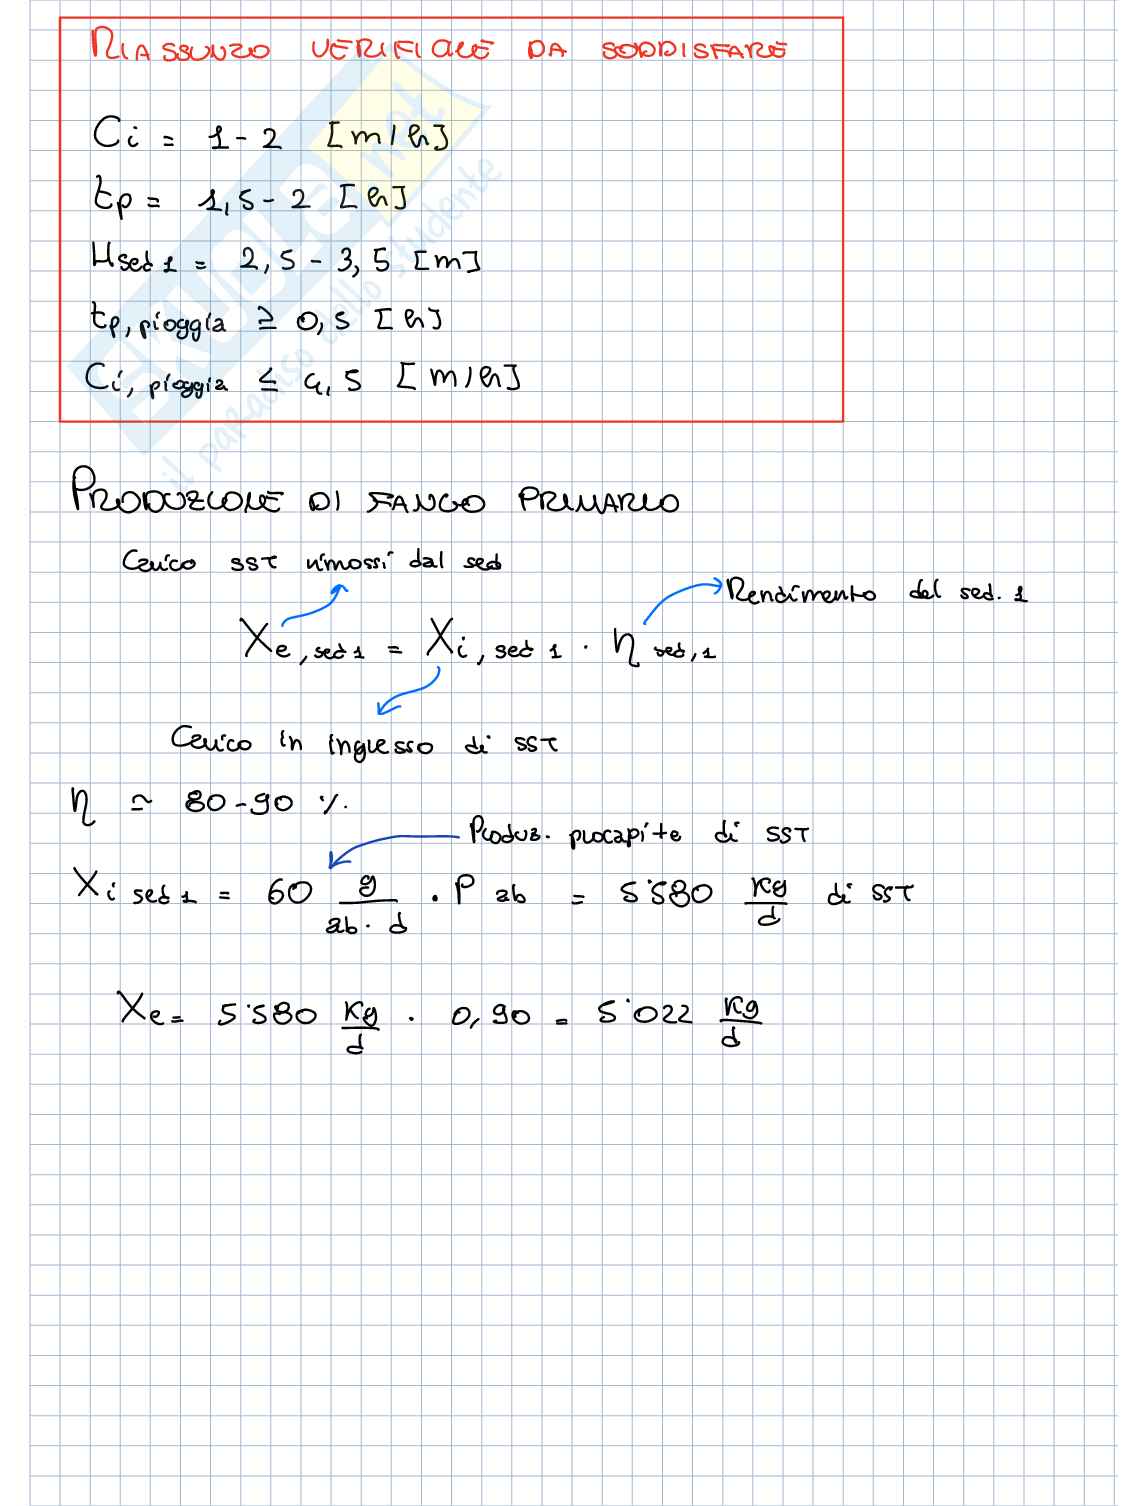 RIASSUNZO VERIFICHE DA SODDISFARE
Ci = 1-2 [m/h]
tp = 1,5-2 [h]
Hsed 1 = 2,5-3,5 [m]
tp, pioggia ≥ 0,5 [h]
Ci, pioggia ≤ 4,5 [m/h]
SKUOLA.net
il paradiso dello studente
PRODUZIONE DI FANGO PRIMARIO
Carico SST rimossi dal sed
Rendimento del sed. 1
Xe, sed 1 = Xi, sed 1 · η sed, 1
Carico in ingresso di SST
η ≃ 80-90 %.
Produz. procapite di SST
Xi sed 1 = 60 g/ab·d · P ab = 5'580 Kg/d di SST
Xe = 5'580 Kg/d · 0,90 = 5'022 Kg/d